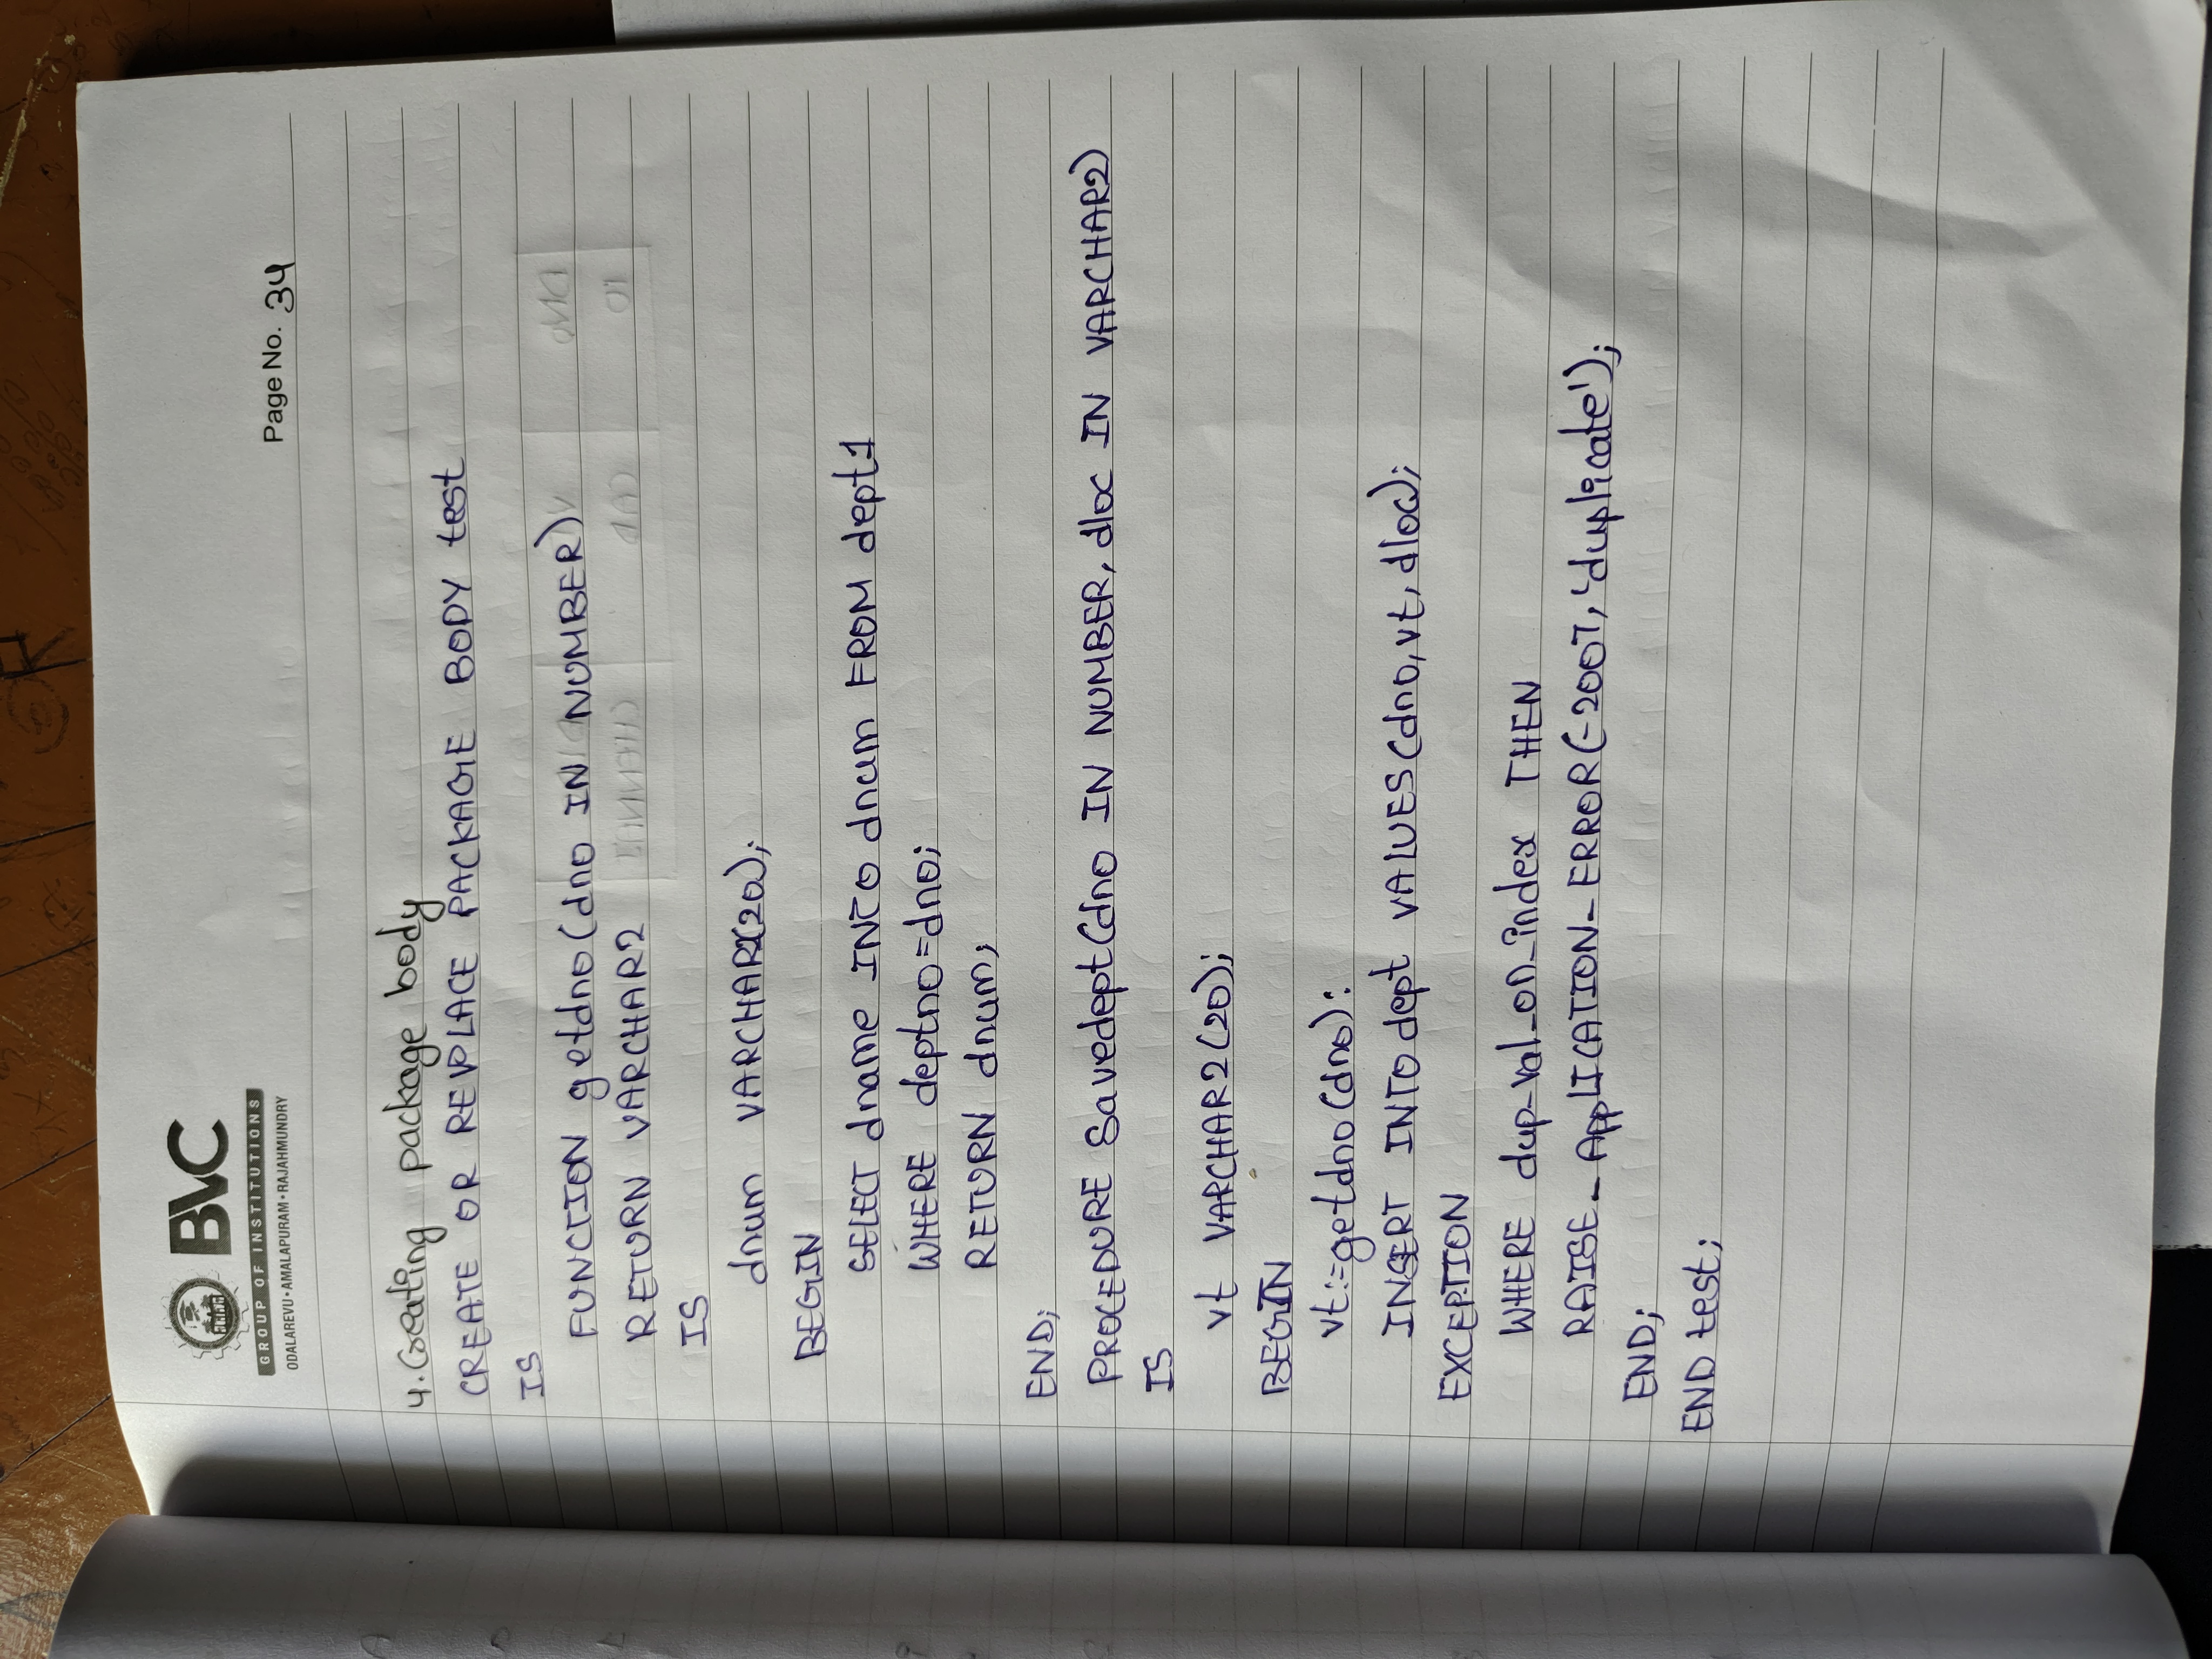 BVC
GROUP OF INSTITUTIONS
ODALAREVU • AMALAPURAM • RAJAHMUNDRY
Page No. 34
4. Creating package body
CREATE OR REPLACE PACKAGE BODY test
IS
FUNCTION getdno(dno IN NUMBER)
RETURN VARCHAR2
IS
dnum VARCHAR2(20);
BEGIN
SELECT dname INTO dnum FROM dept1
WHERE deptno=dno;
RETURN dnum;
END;
PROCEDURE Savedept(dno IN NUMBER, dloc IN VARCHAR2)
IS
vt VARCHAR2(20);
BEGIN
vt:=getdno(dno):
INSERT INTO dept VALUES(dno,vt,dloc);
EXCEPTION
WHERE dup_val_on_index THEN
RAISE_APPLICATION_ERROR(-2007,'duplicate');
END;
END test;